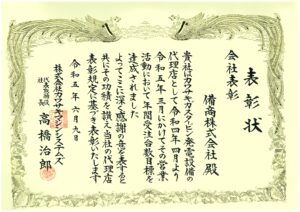 表彰状
会社表彰
備商株式会社 殿
貴社はカワサキガスタービン発電設備の
代理店として令和四年四月より
令和五年三月にかけてその営業
活動において年間受注台数目標を
達成されました
よってここに深く感謝の意を表すると
共にその功績を讃え当社の代理店
表彰規定に基づき表彰いたします
令和五年六月九日
株式会社カワサキマシンシステムズ
代表取締役
社長
高橋治郎